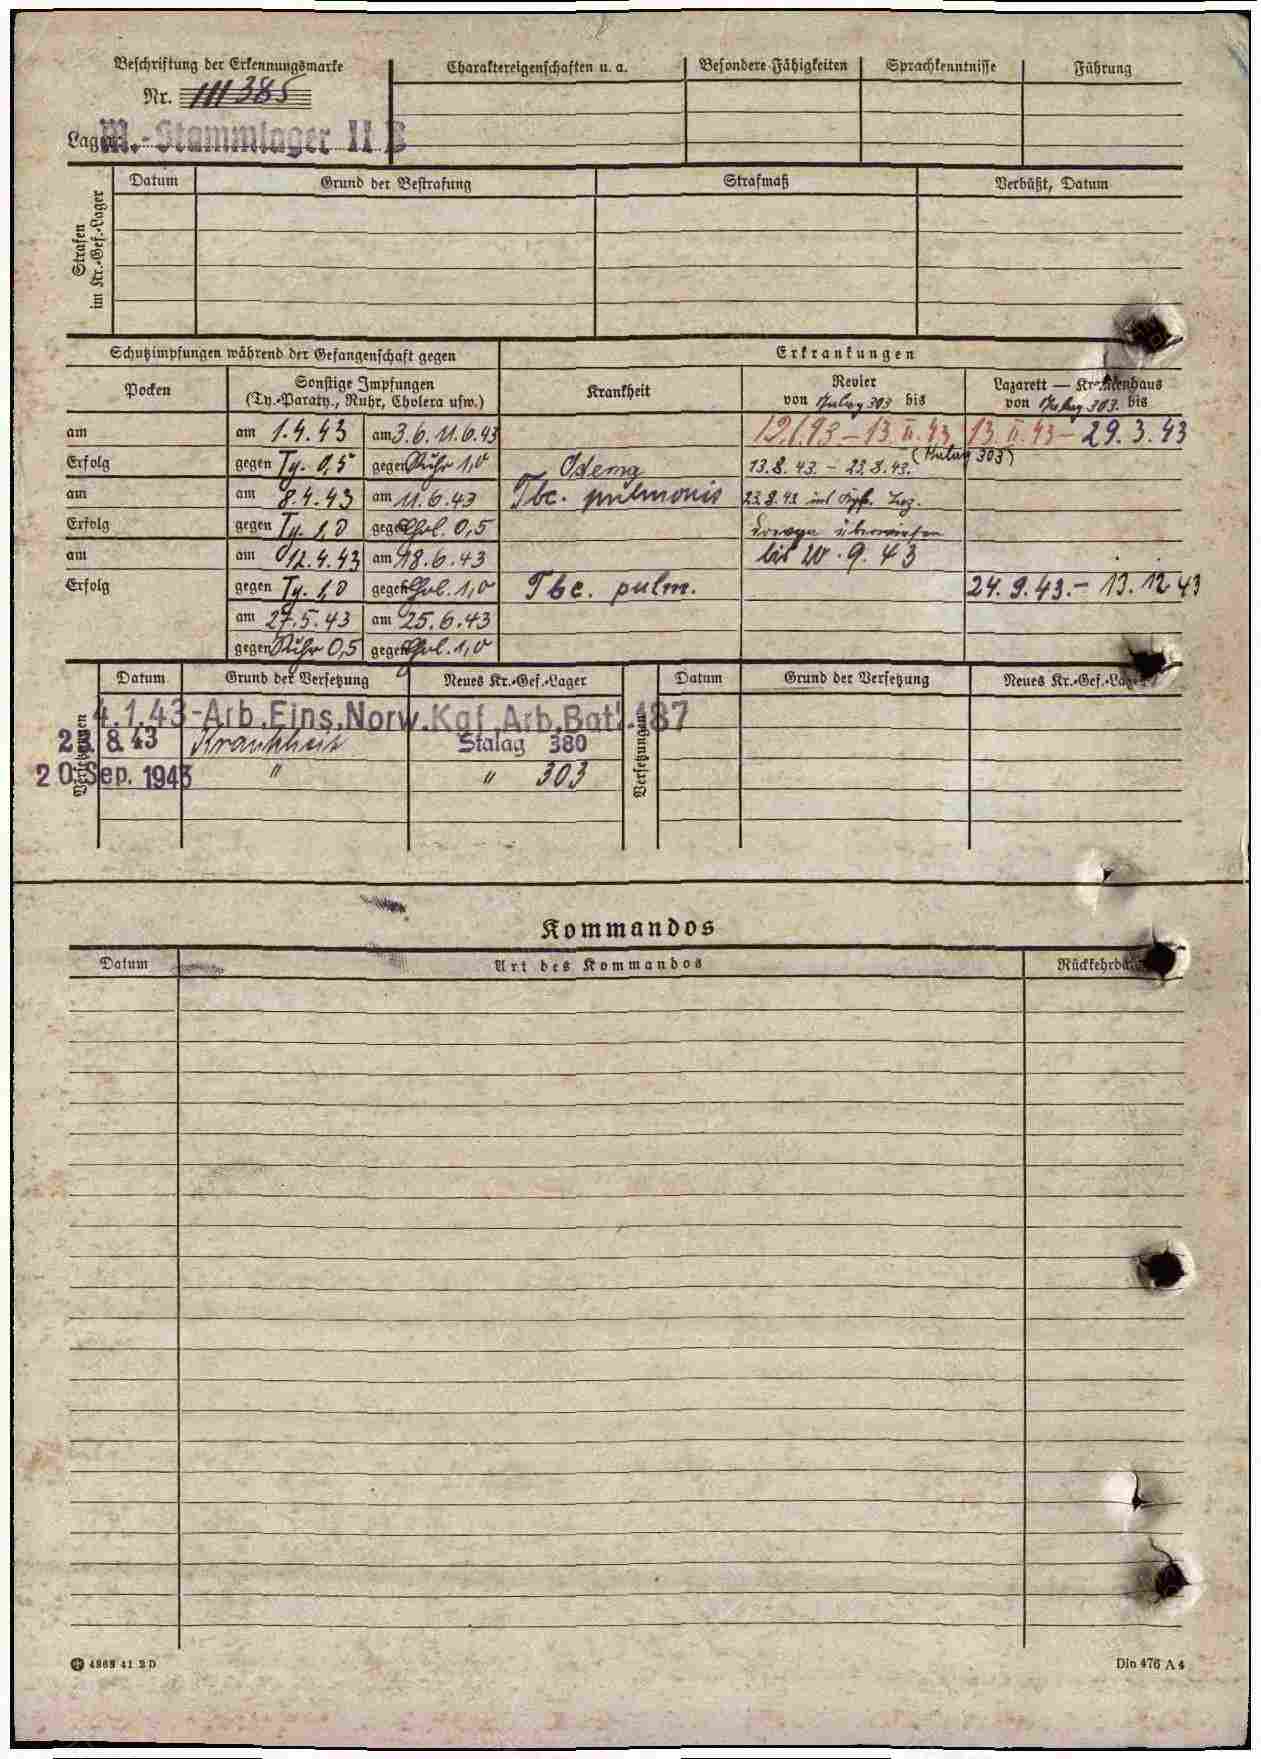 Beschriftung der Erkennungsmarke
Nr. 111385
Lager: M.-Stammlager II B
Charaktereigenschaften u. a.
Besondere Fähigkeiten
Sprachkenntnisse
Führung
Strafen im Kr.-Gef.-Lager
Datum
Grund der Bestrafung
Strafmaß
Verbüßt, Datum
Schutzimpfungen während der Gefangenschaft gegen
Erkrankungen
Pocken
Sonstige Impfungen
(Ty.-Paraty., Ruhr, Cholera usw.)
Krankheit
Revier
von Stalag 303 bis
Lazarett — Krankenhaus
von Stalag 303. bis
am
am 1.4.43
am 3.6. 11.6.43
12.1.43 – 13.II.43
13.II.43 – 29.3.43
Erfolg
gegen Ty. 0,5
gegen Ruhr 1,0
Ödeme
13.8.43. – 23.8.43.
(Stalag 303)
am
am 8.4.43
am 11.6.43
Tbc. pulmonis
Erfolg
gegen Ty. 1,0
gegen Chol. 0,5
überwiesen
am
am 12.4.43
am 18.6.43
bis 20.9.43
Erfolg
gegen Ty. 1,0
gegen Chol. 1,0
Tbc. pulm.
24.9.43. – 13.12.43
am 27.5.43
am 25.6.43
gegen Ruhr 0,5
gegen Chol. 1,0
Versetzungen
Datum
Grund der Versetzung
Neues Kr.-Gef.-Lager
Versetzungen
Datum
Grund der Versetzung
Neues Kr.-Gef.-Lager
4.1.43-Arb.Eins.Norw.Kgf.Arb.Batl.187
23. 8. 43 Krankheit Stalag 380
20. Sep. 1943 " " 303
Kommandos
Datum
Art des Kommandos
4868 41 2 D
Din 476 A 4